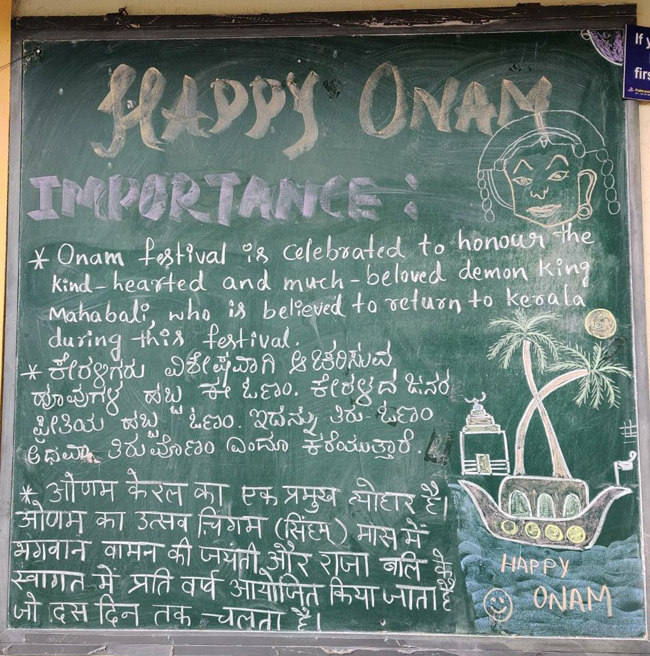 HAPPY ONAM
IMPORTANCE :
* Onam festival is celebrated to honour the
kind-hearted and much-beloved demon king
Mahabali, who is believed to return to kerala
during this festival.
* ಕೇರಳಿಗರು ವಿಶೇಷವಾಗಿ ಆಚರಿಸುವ
ಹೂವುಗಳ ಹಬ್ಬ ಈ ಓಣಂ. ಕೇರಳದ ಜನರ
ಪ್ರೀತಿಯ ಹಬ್ಬ ಓಣಂ. ಇದನ್ನು ತಿರು ಓಣಂ
ಅಥವಾ ತಿರುವೋಣಂ ಎಂದೂ ಕರೆಯುತ್ತಾರೆ.
* ओणम केरल का एक प्रमुख त्योहार है।
ओणम का उत्सव चिंगम (सिंहम्) मास में
भगवान वामन की जयंती और राजा बलि के
स्वागत में प्रति वर्ष आयोजित किया जाता है
जो दस दिन तक चलता है।
HAPPY
ONAM
If y
firs